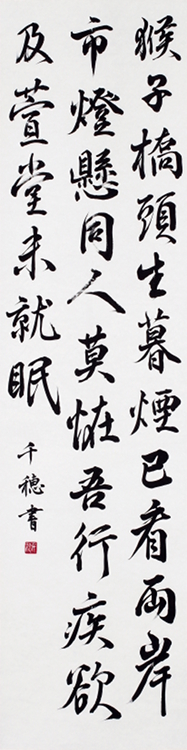 猴子橋頭生暮煙已看兩岸
市燈懸同人莫怪吾行疾欲
及萱堂未就眠
千穗書